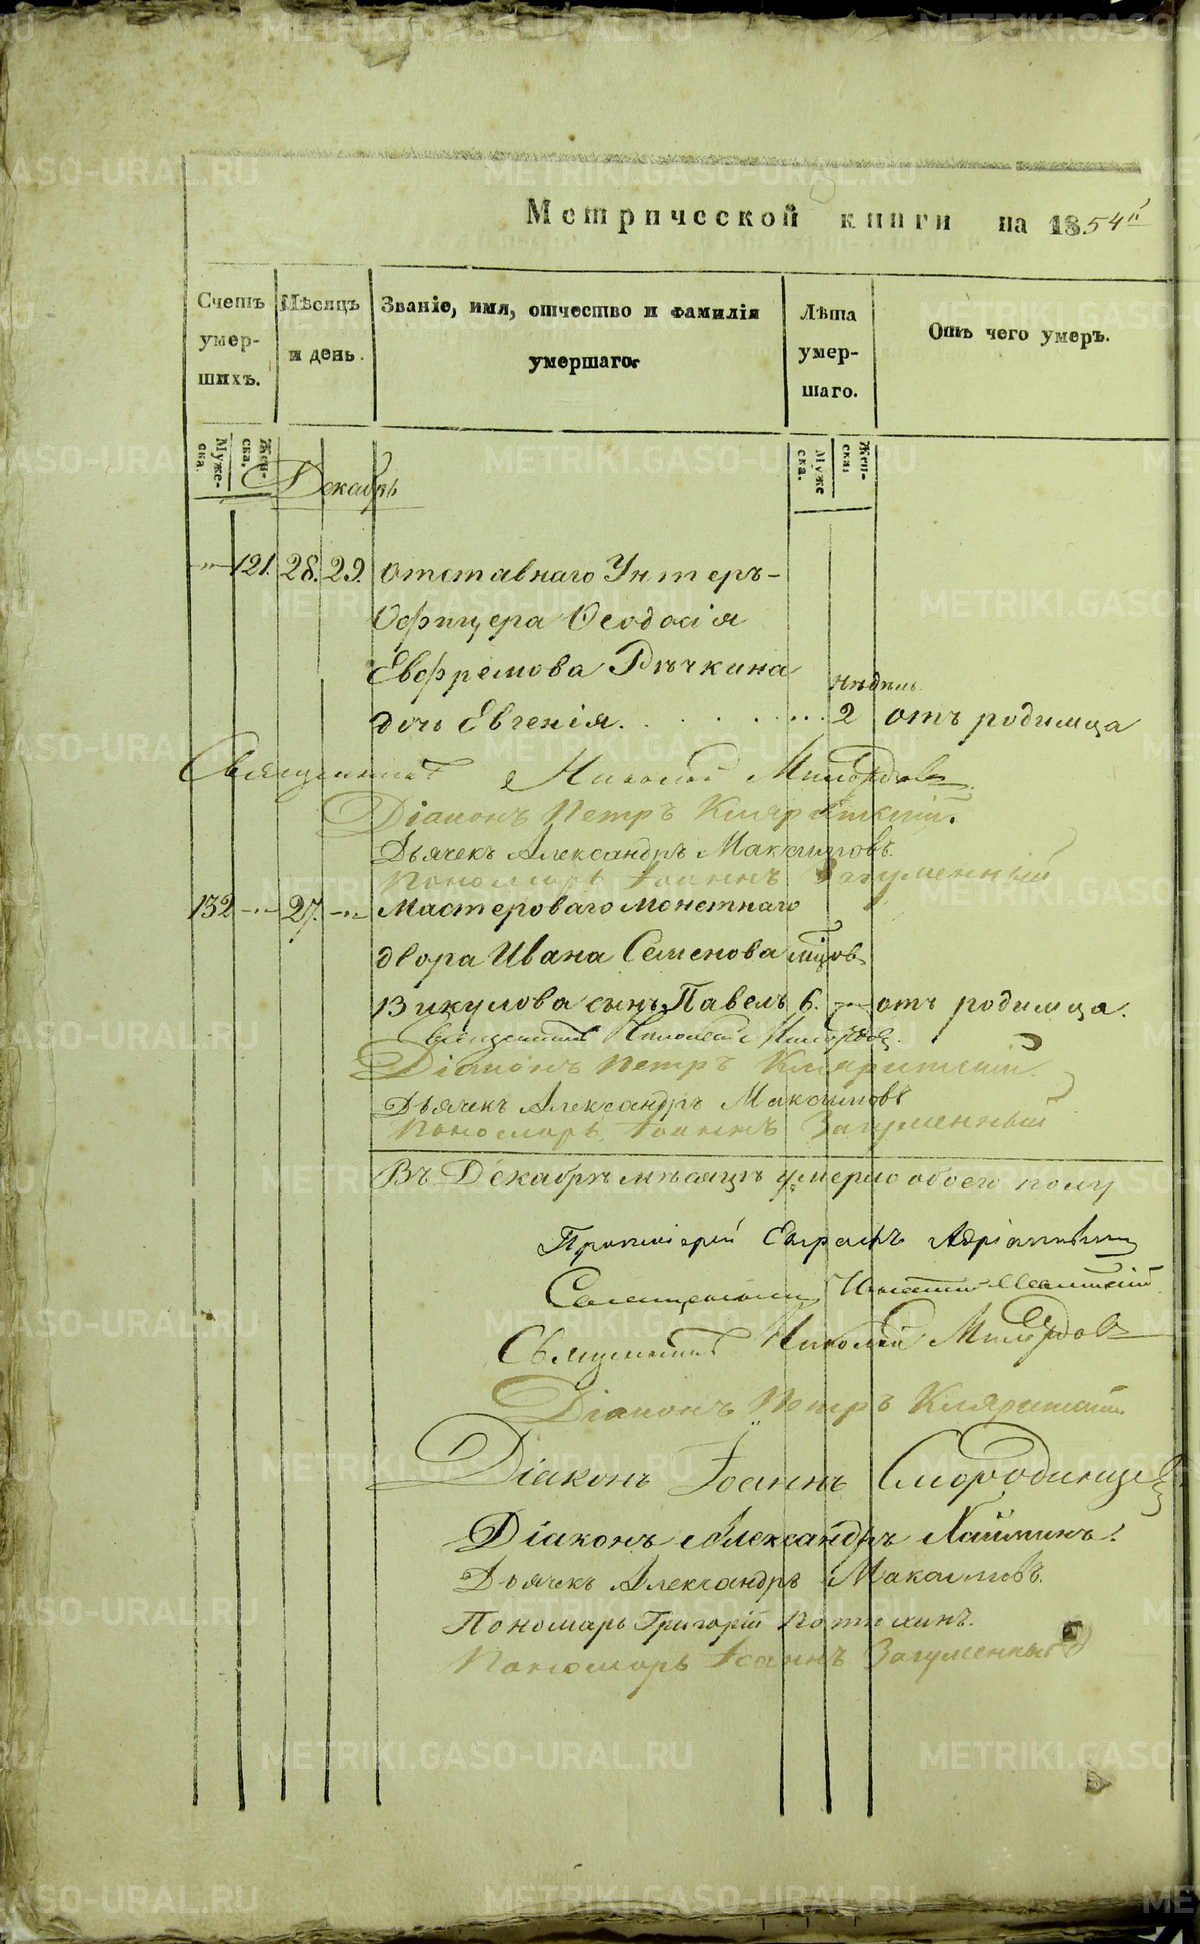 Метрической книги на 1854й
Счетъ умер- шихъ.
Мѣсяцъ и день.
Званіе, имя, отчество и фамилія умершаго.
Лѣта умер- шаго.
Отъ чего умеръ.
Муже- ска.
Жен- ска.
Муже ска.
Жен- ска.
Декабрь
-"- 121. 28. 29. Отставнаго Унтеръ-
Офицера Ѳеодосія
Евфремова Рычкина недѣль
дочь Евгенія. . . . . . . . 2 отъ родимца
Священникъ Николай Милордовъ
Діаконъ Петръ Кляритскій.
Дьячекъ Александръ Максимовъ.
Пономарь Іоаннъ Загуменный
132 -"- 27. -"- Мастероваго Монетнаго
двора Ивана Семенова мѣсяцов
Викулова сынъ Павелъ 6. -"- отъ родимца.
Священникъ Николай Милордовъ.
Діаконъ Петръ Кляритскій.
Дьячекъ Александръ Максимовъ
Пономарь Іоаннъ Загуменный
Въ Декабрѣ мѣсяцѣ умерло обоего полу
Протоіерей
Священникъ Игнатій
Священникъ Николай Милордовъ
Діаконъ Петръ Кляритскій.
Діаконъ Іоаннъ Смородинцевъ
Діаконъ Александръ Хайминъ.
Дьячекъ Александръ Максимовъ.
Пономарь Григорій Потѣхинъ.
Пономарь Іоаннъ Загуменный
METRIKI.GASO-URAL.RU